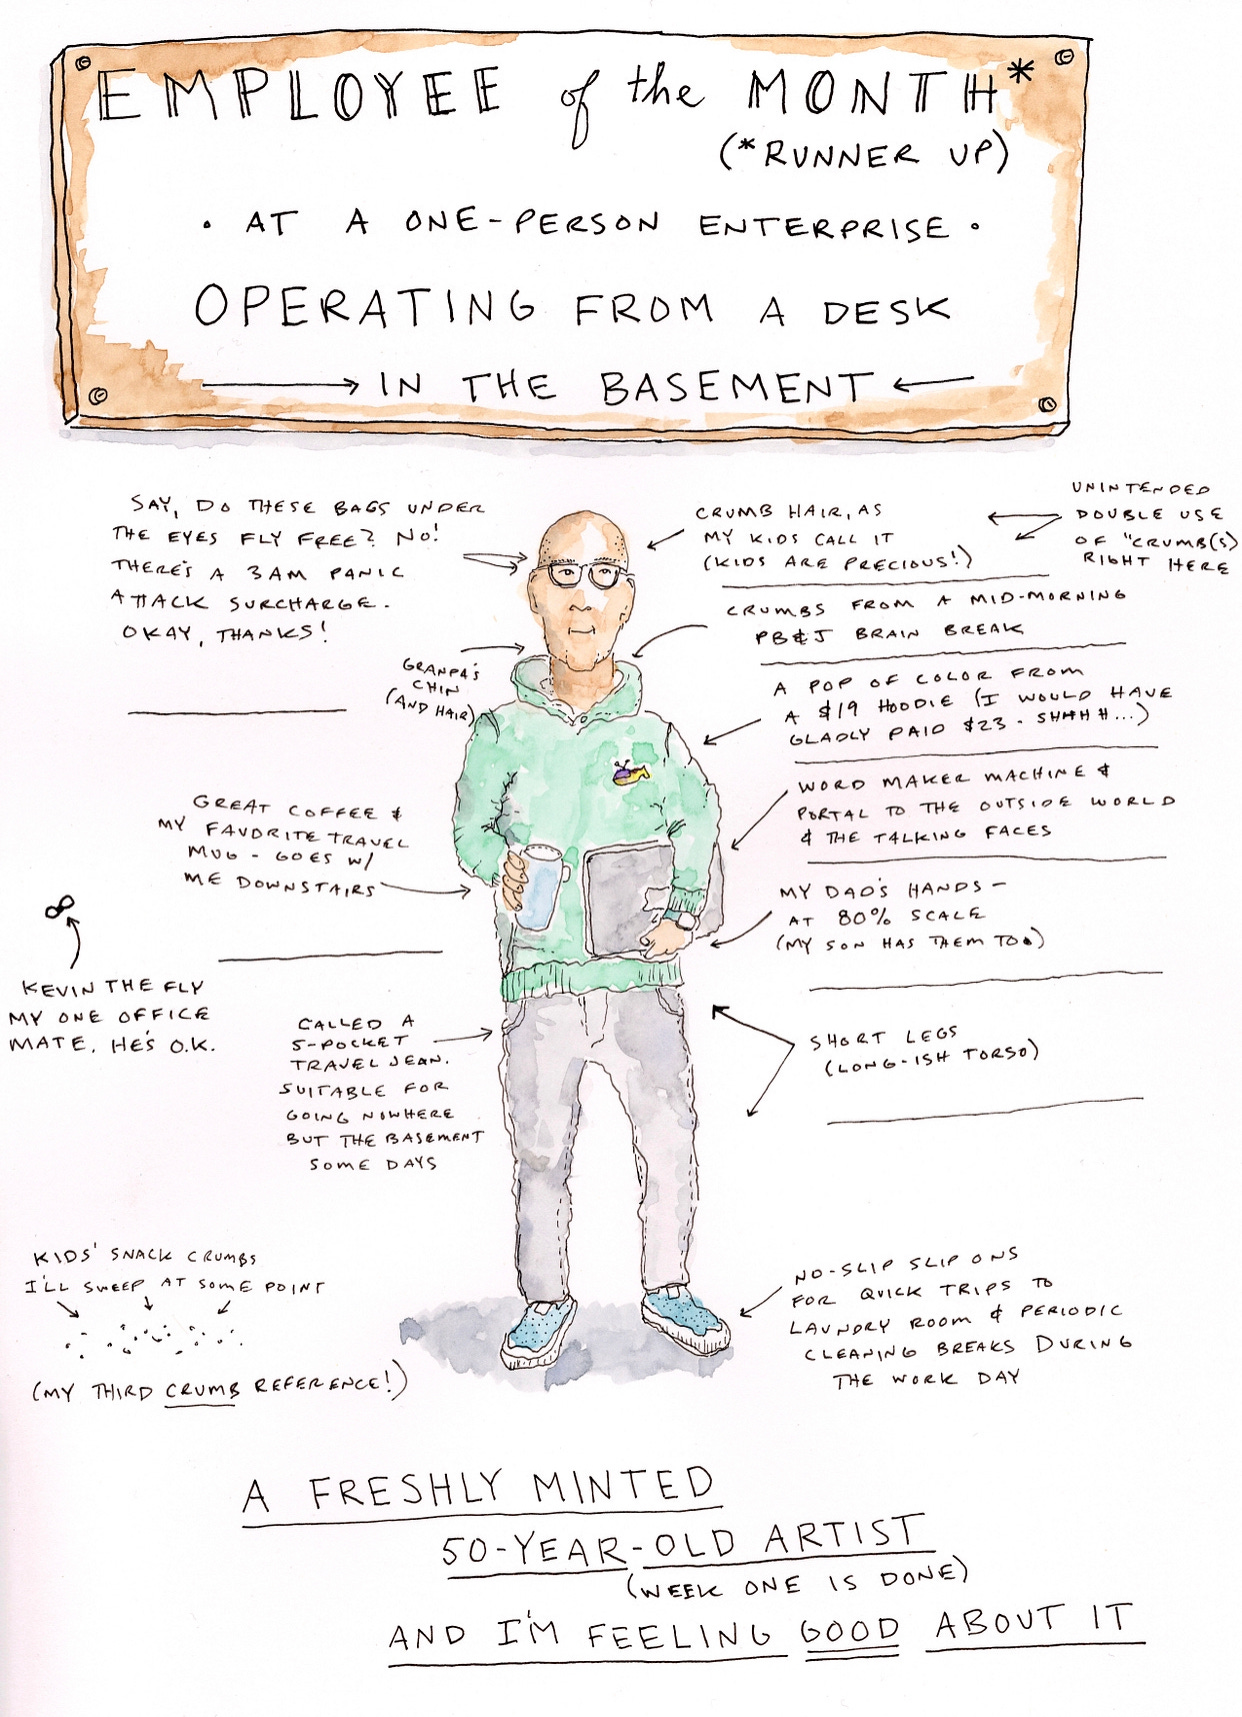 EMPLOYEE of the MONTH*
(*RUNNER UP)
• AT A ONE-PERSON ENTERPRISE •
OPERATING FROM A DESK
IN THE BASEMENT
SAY, DO THESE BAGS UNDER
THE EYES FLY FREE? NO!
THERE'S A 3AM PANIC
ATTACK SURCHARGE.
OKAY, THANKS!
CRUMB HAIR, AS
MY KIDS CALL IT
(KIDS ARE PRECIOUS!)
UNINTENDED
DOUBLE USE
OF "CRUMB(S)
RIGHT HERE
CRUMBS FROM A MID-MORNING
PB&J BRAIN BREAK
GRANPA'S
CHIN
(AND HAIR)
A POP OF COLOR FROM
A $19 HOODIE (I WOULD HAVE
GLADLY PAID $23 - SHHHH...)
WORD MAKER MACHINE &
PORTAL TO THE OUTSIDE WORLD
& THE TALKING FACES
GREAT COFFEE &
MY FAVORITE TRAVEL
MUG - GOES W/
ME DOWNSTAIRS
MY DAD'S HANDS -
AT 80% SCALE
(MY SON HAS THEM TOO)
KEVIN THE FLY
MY ONE OFFICE
MATE. HE'S O.K.
CALLED A
5-POCKET
TRAVEL JEAN.
SUITABLE FOR
GOING NOWHERE
BUT THE BASEMENT
SOME DAYS
SHORT LEGS
(LONG-ISH TORSO)
KIDS' SNACK CRUMBS
I'LL SWEEP AT SOME POINT
(MY THIRD CRUMB REFERENCE!)
NO-SLIP SLIP ONS
FOR QUICK TRIPS TO
LAUNDRY ROOM & PERIODIC
CLEANING BREAKS DURING
THE WORK DAY
A FRESHLY MINTED
50-YEAR-OLD ARTIST
(WEEK ONE IS DONE)
AND I'M FEELING GOOD ABOUT IT